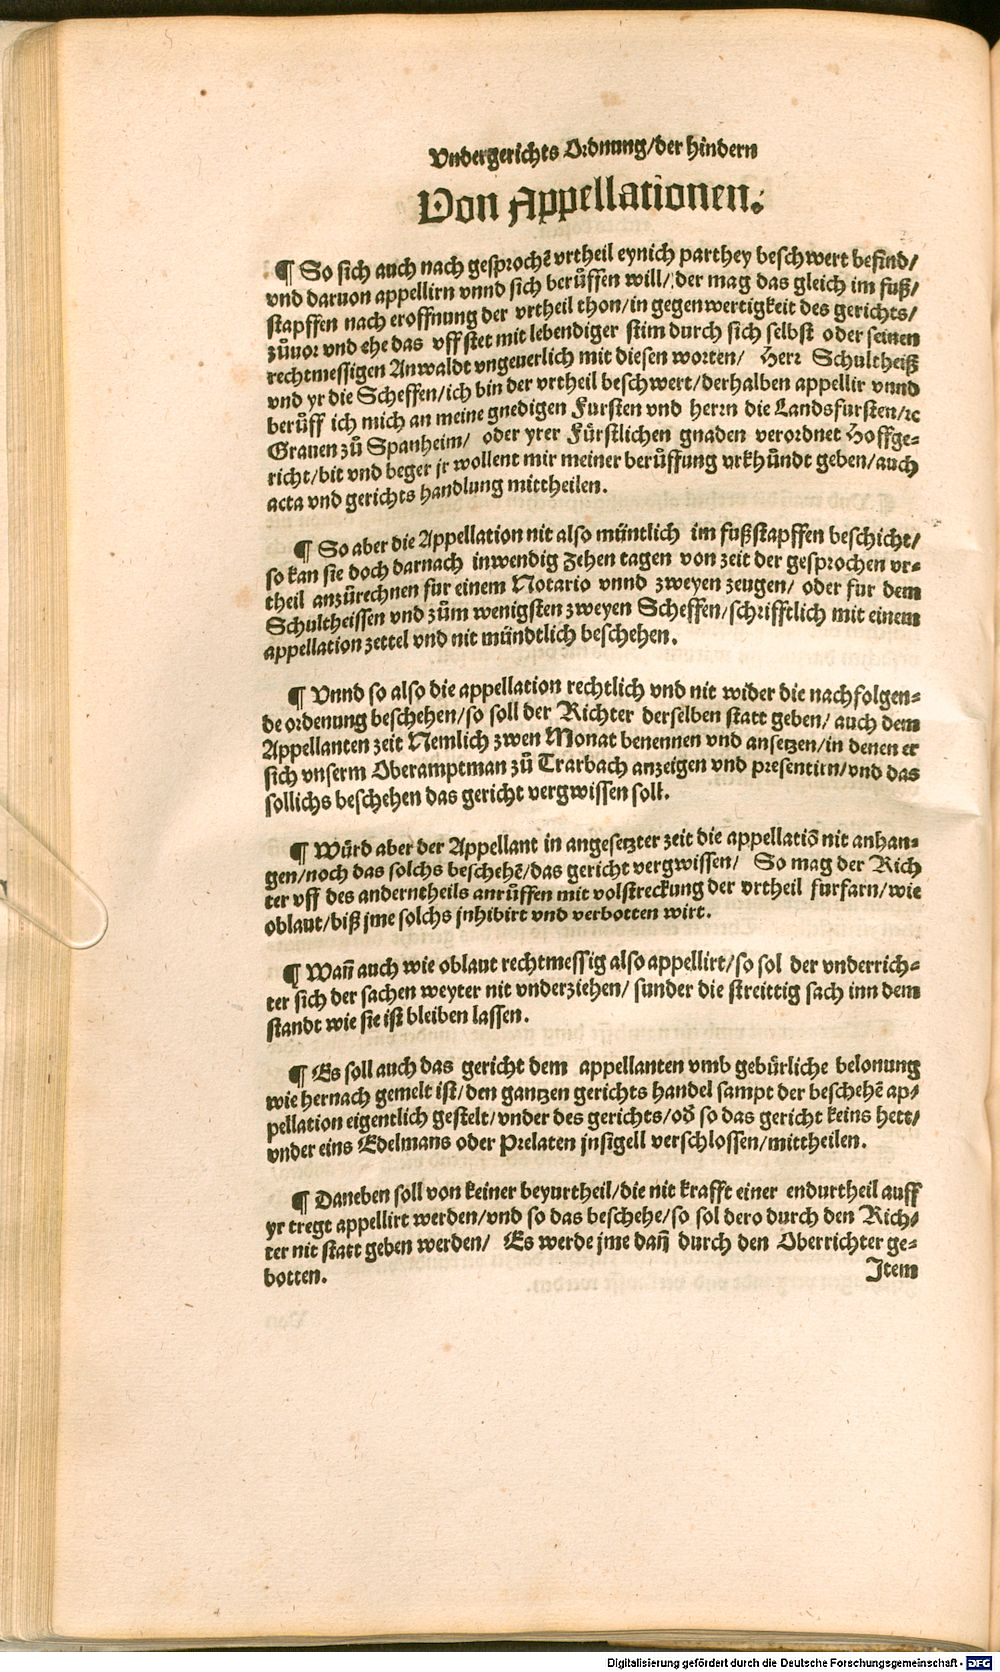 Vndergerichts Ordnung/der hindern
Von Appellationen.
¶ So sich auch nach gesprochē vrtheil eynich parthey beschwert befind/
vnd daruon appellirn vnnd sich berůffen will/ der mag das gleich im fuß/
stapffen nach eroffnung der vrtheil thon/in gegenwertigkeit des gerichts/
zůuor vnd ehe das vffstet mit lebendiger stim durch sich selbst oder seinen
rechtmessigen Anwaldt vngeuerlich mit diesen worten/ Herr Schultheiß
vnd yr die Scheffen/ich bin der vrtheil beschwert/derhalben appellir vnnd
berůff ich mich an meine gnedigen Fursten vnd herrn die Landsfursten/ꝛc
Grauen zů Spanheim/ oder yrer Fürstlichen gnaden verordnet Hoffge⸗
richt/bit vnd beger jr wollent mir meiner berůffung vrkhůndt geben/auch
acta vnd gerichts handlung mittheilen.
¶ So aber die Appellation nit also müntlich im fußstapffen beschicht/
so kan sie doch darnach inwendig zehen tagen von zeit der gesprochen vr⸗
theil anzůrechnen fur einem Notario vnnd zweyen zeugen/ oder fur dem
Schultheissen vnd zům wenigsten zweyen Scheffen/schrifftlich mit einem
appellation zettel vnd nit mündtlich beschehen.
¶ Vnnd so also die appellation rechtlich vnd nit wider die nachfolgen⸗
de ordenung beschehen/so soll der Richter derselben statt geben/ auch dem
Appellanten zeit Nemlich zwen Monat benennen vnd ansetzen/in denen er
sich vnserm Oberamptman zů Trarbach anzeigen vnd presentirn/vnd das
sollichs beschehen das gericht vergwissen soll.
¶ Wůrd aber der Appellant in angesetzter zeit die appellatiō nit anhan⸗
gen/noch das solchs beschehē/das gericht vergwissen/ So mag der Rich
ter vff des anderntheils anrůffen mit volstreckung der vrtheil furfarn/wie
oblaut/biß jme solchs jnhibirt vnd verbotten wirt.
¶ Wañ auch wie oblaut rechtmessig also appellirt/so sol der vnderrich⸗
ter sich der sachen weyter nit vnderziehen/ sunder die streittig sach inn dem
standt wie sie ist bleiben lassen.
¶ Es soll auch das gericht dem appellanten vmb gebürliche belonung
wie hernach gemelt ist/den gantzen gerichts handel sampt der beschehē ap⸗
pellation eigentlich gestelt/vnder des gerichts/od̄ so das gericht keins hett/
vnder eins Edelmans oder Prelaten jnsigell verschlossen/mittheilen.
¶ Daneben soll von keiner beyurtheil/die nit krafft einer endurtheil auff
yr tregt appellirt werden/vnd so das beschehe/so sol dero durch den Rich⸗
ter nit statt geben werden/ Es werde jme dañ durch den Oberrichter ge⸗
botten.
Item
Digitalisierung gefördert durch die Deutsche Forschungsgemeinschaft - DFG